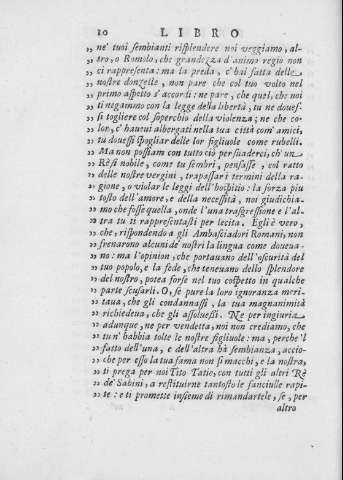 10 LIBRO
„ ne' tuoi sembianti risplendere noi veggiamo, al-
„ tro, o Romolo, che grandezza d'animo regio non
„ ci rappresenta: ma la preda, c'hai fatta delle
„ nostre donzelle, non pare che col tuo volto nel
„ primo aspetto s'accordi: ne pare, che quel, che noi
„ ti negammo con la legge della libertà, tu ne doues-
„ si togliere col soperchio della violenza; ne che co-
„ lor, c'haueui albergati nella tua città com' amici,
„ tu douessi spogliar delle lor figliuole come rubelli.
„ Ma non possiam con tutto ciò persuaderci, ch'un
„ Rè sì nobile, come tu sembri, pensasse, col ratto
„ delle nostre vergini, trapassar i termini della ra-
„ gione, o violar le leggi dell'hospitio: la forza piu
„ tosto dell'amore, e della necessità, noi giudichia-
„ mo che fosse quella, onde l'una trasgressione e l'al-
„ tra tu ti rappresentasti per lecita. Egli è vero,
„ che, rispondendo a gli Ambasciadori Romani, non
„ frenarono alcuni de' nostri la lingua come doueua-
„ no: ma l'opinion, che portauano dell'oscurità del
„ tuo popolo, e la fede, che teneuano dello splendore
„ del nostro, potea forse nel tuo cospetto in qualche
„ parte scusarli. O, se pure la loro ignoranza meri-
„ taua, che gli condannassi, la tua magnanimità
„ richiedeua, che gli assoluessi. Ne per ingiuria
„ adunque, ne per vendetta, noi non crediamo, che
„ tu n'habbia tolte le nostre figliuole: ma, perche 'l
„ fatto dell'una, e dell'altra hà sembianza, accio-
„ che per esso la tua fama non si macchi, e la nostra,
„ ti prega per noi Tito Tatio, con tutti gli altri Rè
„ de' Sabini, a restituirne tantosto le fanciulle rapi-
„ te: e ti promette insieme di rimandartele, se, per
altro